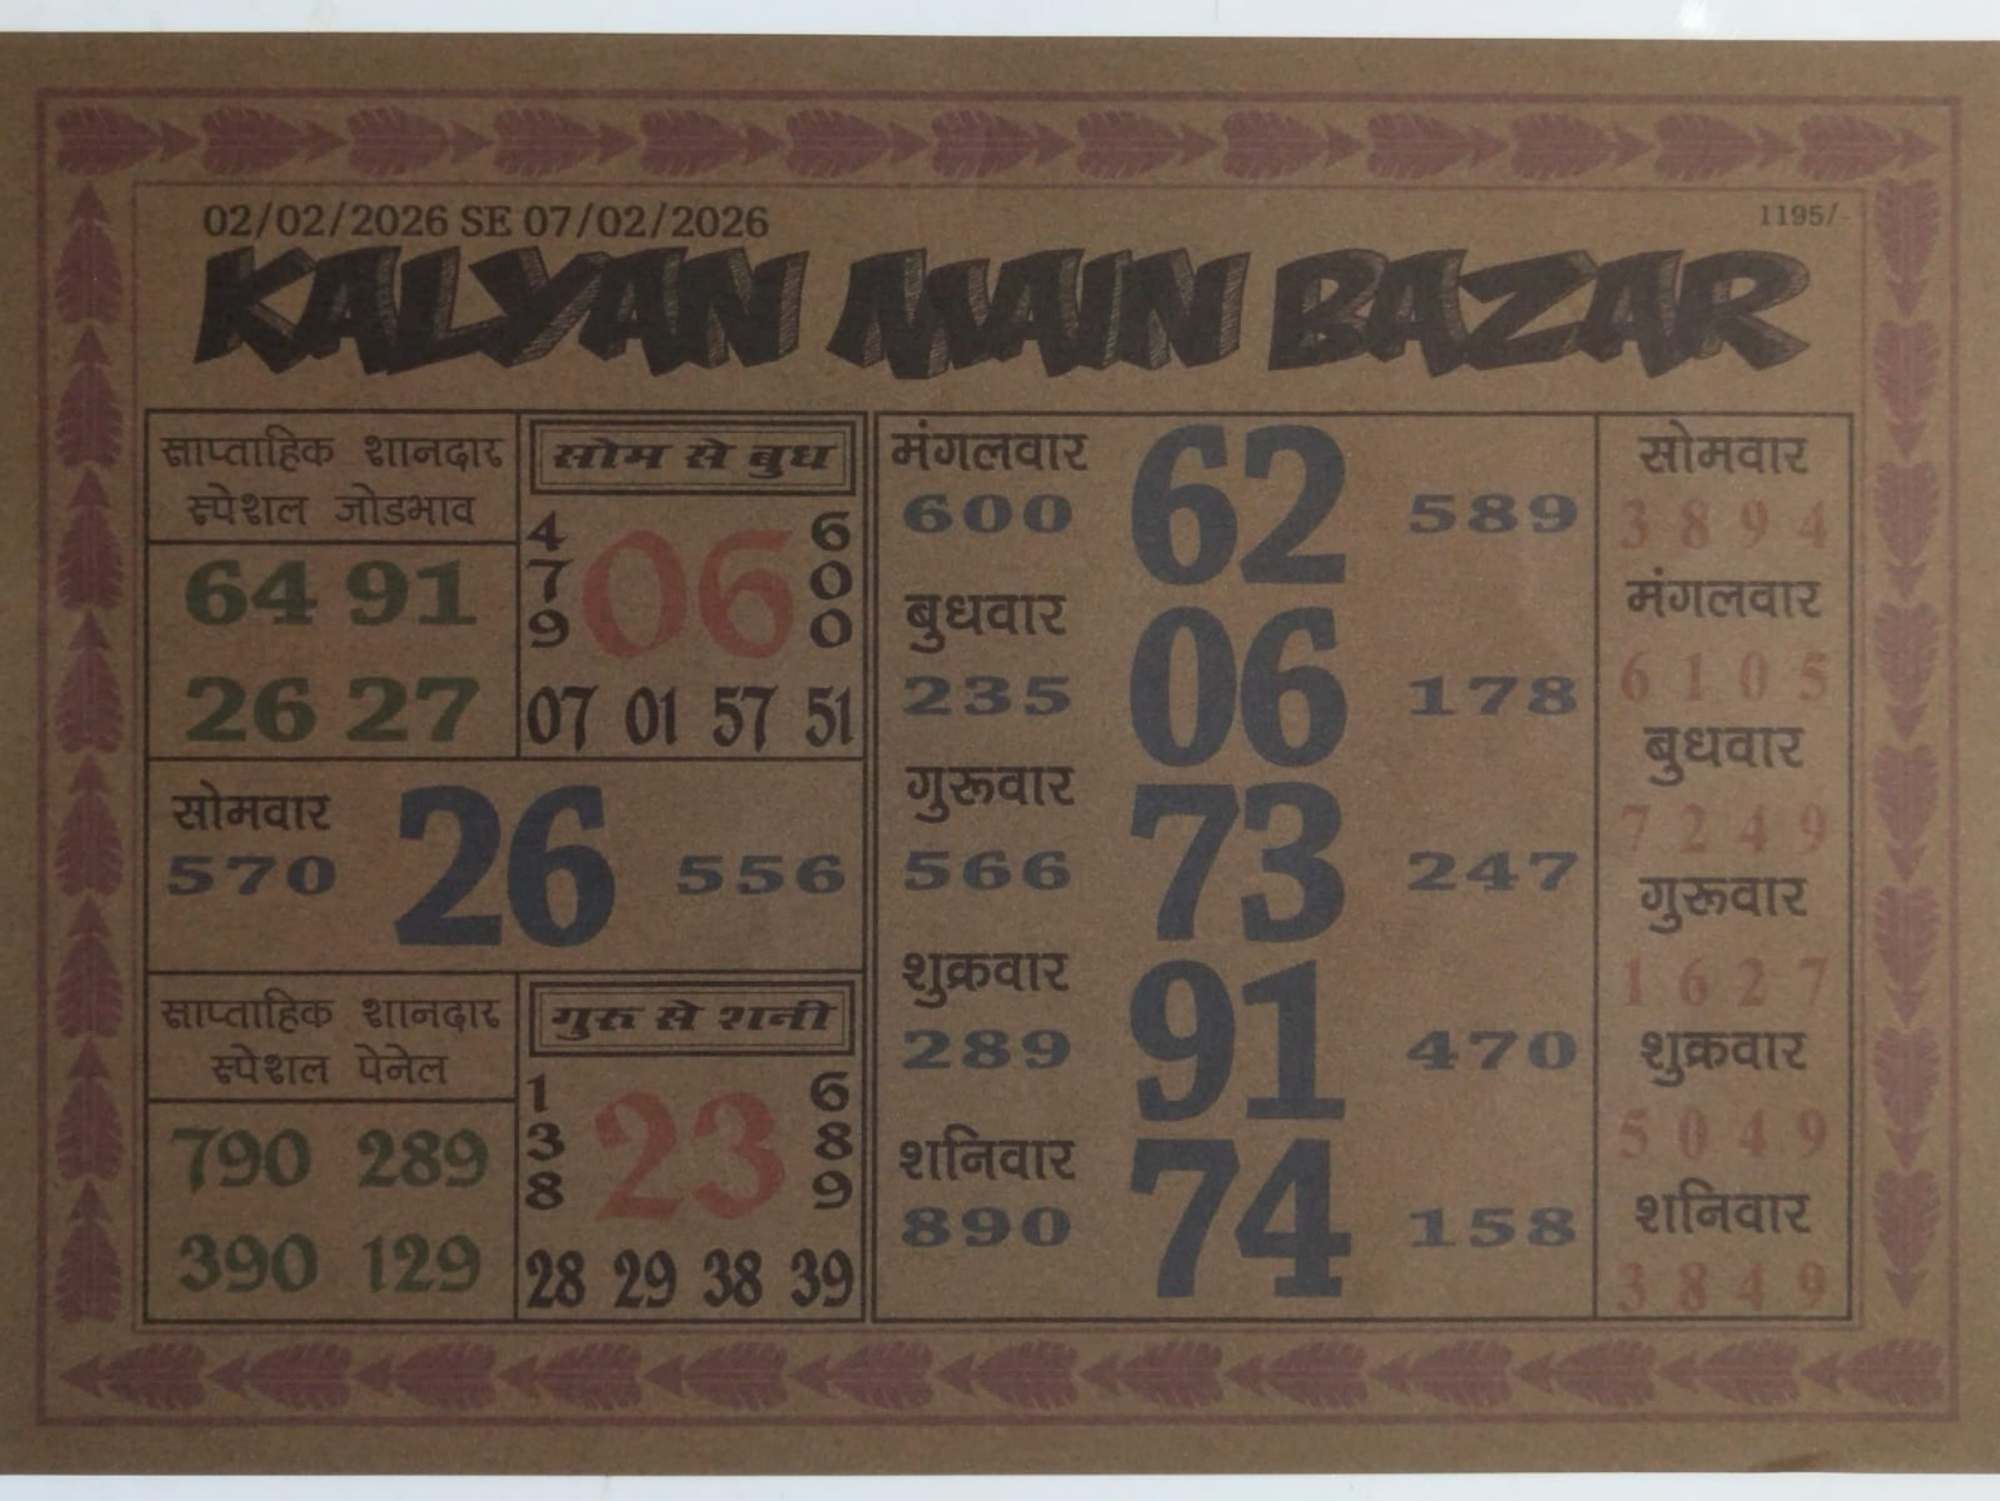 02/02/2026 SE 07/02/2026
1195/-
KALYAN MAIN BAZAR
साप्ताहिक शानदार
स्पेशल जोडभाव
64 91
26 27
सोम से बुध
4 06 6
7 0
9 0
07 01 57 51
सोमवार
570 26 556
साप्ताहिक शानदार
स्पेशल पेनेल
790 289
390 129
गुरु से शनी
1 23 6
3 8
8 9
28 29 38 39
मंगलवार
600 62 589
बुधवार
235 06 178
गुरूवार
566 73 247
शुक्रवार
289 91 470
शनिवार
890 74 158
सोमवार
3 8 9 4
मंगलवार
6 1 0 5
बुधवार
7 2 4 9
गुरूवार
1 6 2 7
शुक्रवार
5 0 4 9
शनिवार
3 8 4 9